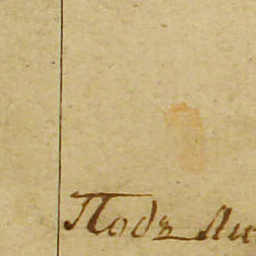 Подъ Ли